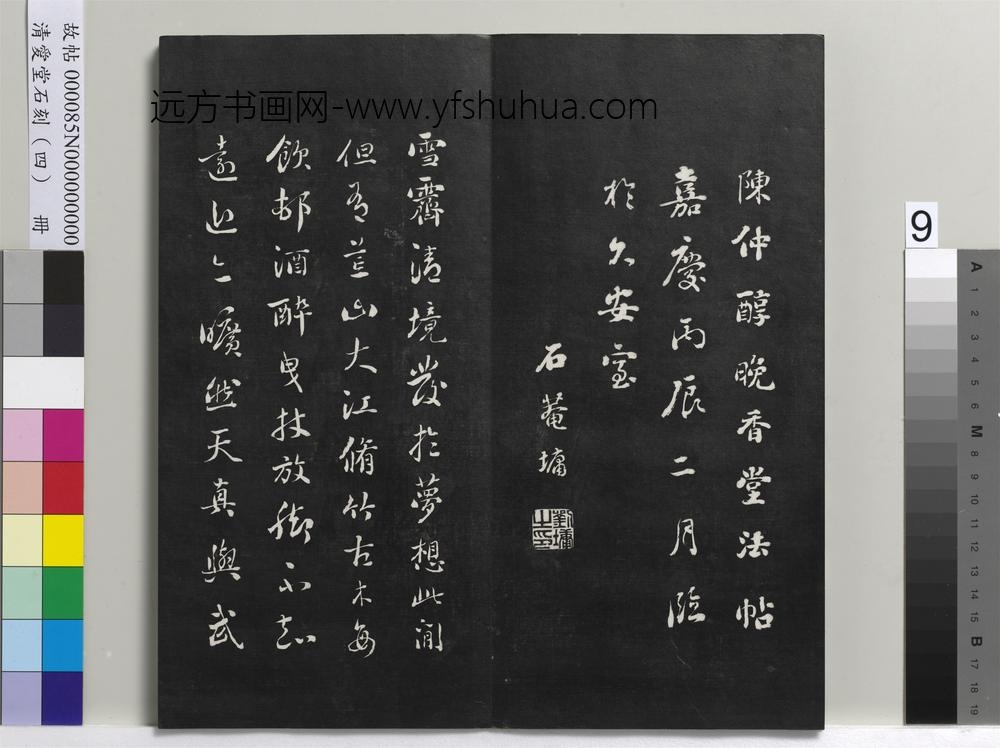 故帖 000085N000000000
清愛堂石刻（四） 冊
远方书画网-www.yfshuhua.com
陳仲醇晚香堂法帖
嘉慶丙辰二月臨
於久安室
石菴墉
劉墉之印
雪霽清境發於夢想此間
但有荒山大江脩竹古木每
飲邨酒醉曳杖放腳不知
遠近亦曠然天真與武
9
A
1
2
3
4
5
6
M
8
9
10
11
12
13
14
15
B
17
18
19